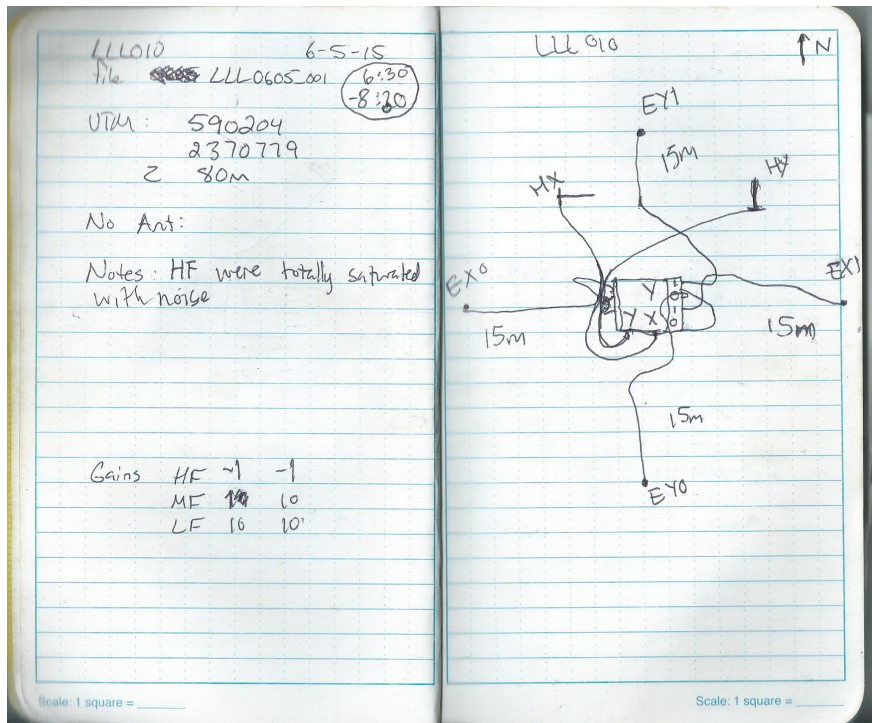 LLL010 6-5-15
file LLL0605_001 6:30
-8:20
UTM: 590204
2370779
Z 80m
No Ant:
Notes: HF were totally saturated
with noise
Gains HF -1 -1
MF 10
LF 10 10
Scale: 1 square =
LLL 010 N
EY1
15m
HX HY
EX0 EX1
Y
Y X
15m 15m
15m
EY0
Scale: 1 square =